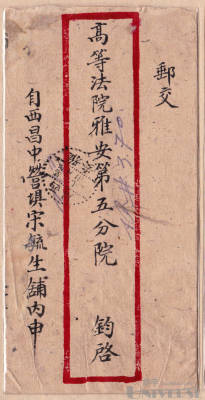 郵交
高等法院雅安第五分院 鈞啓
自西昌中營塡宋毓生舖內申